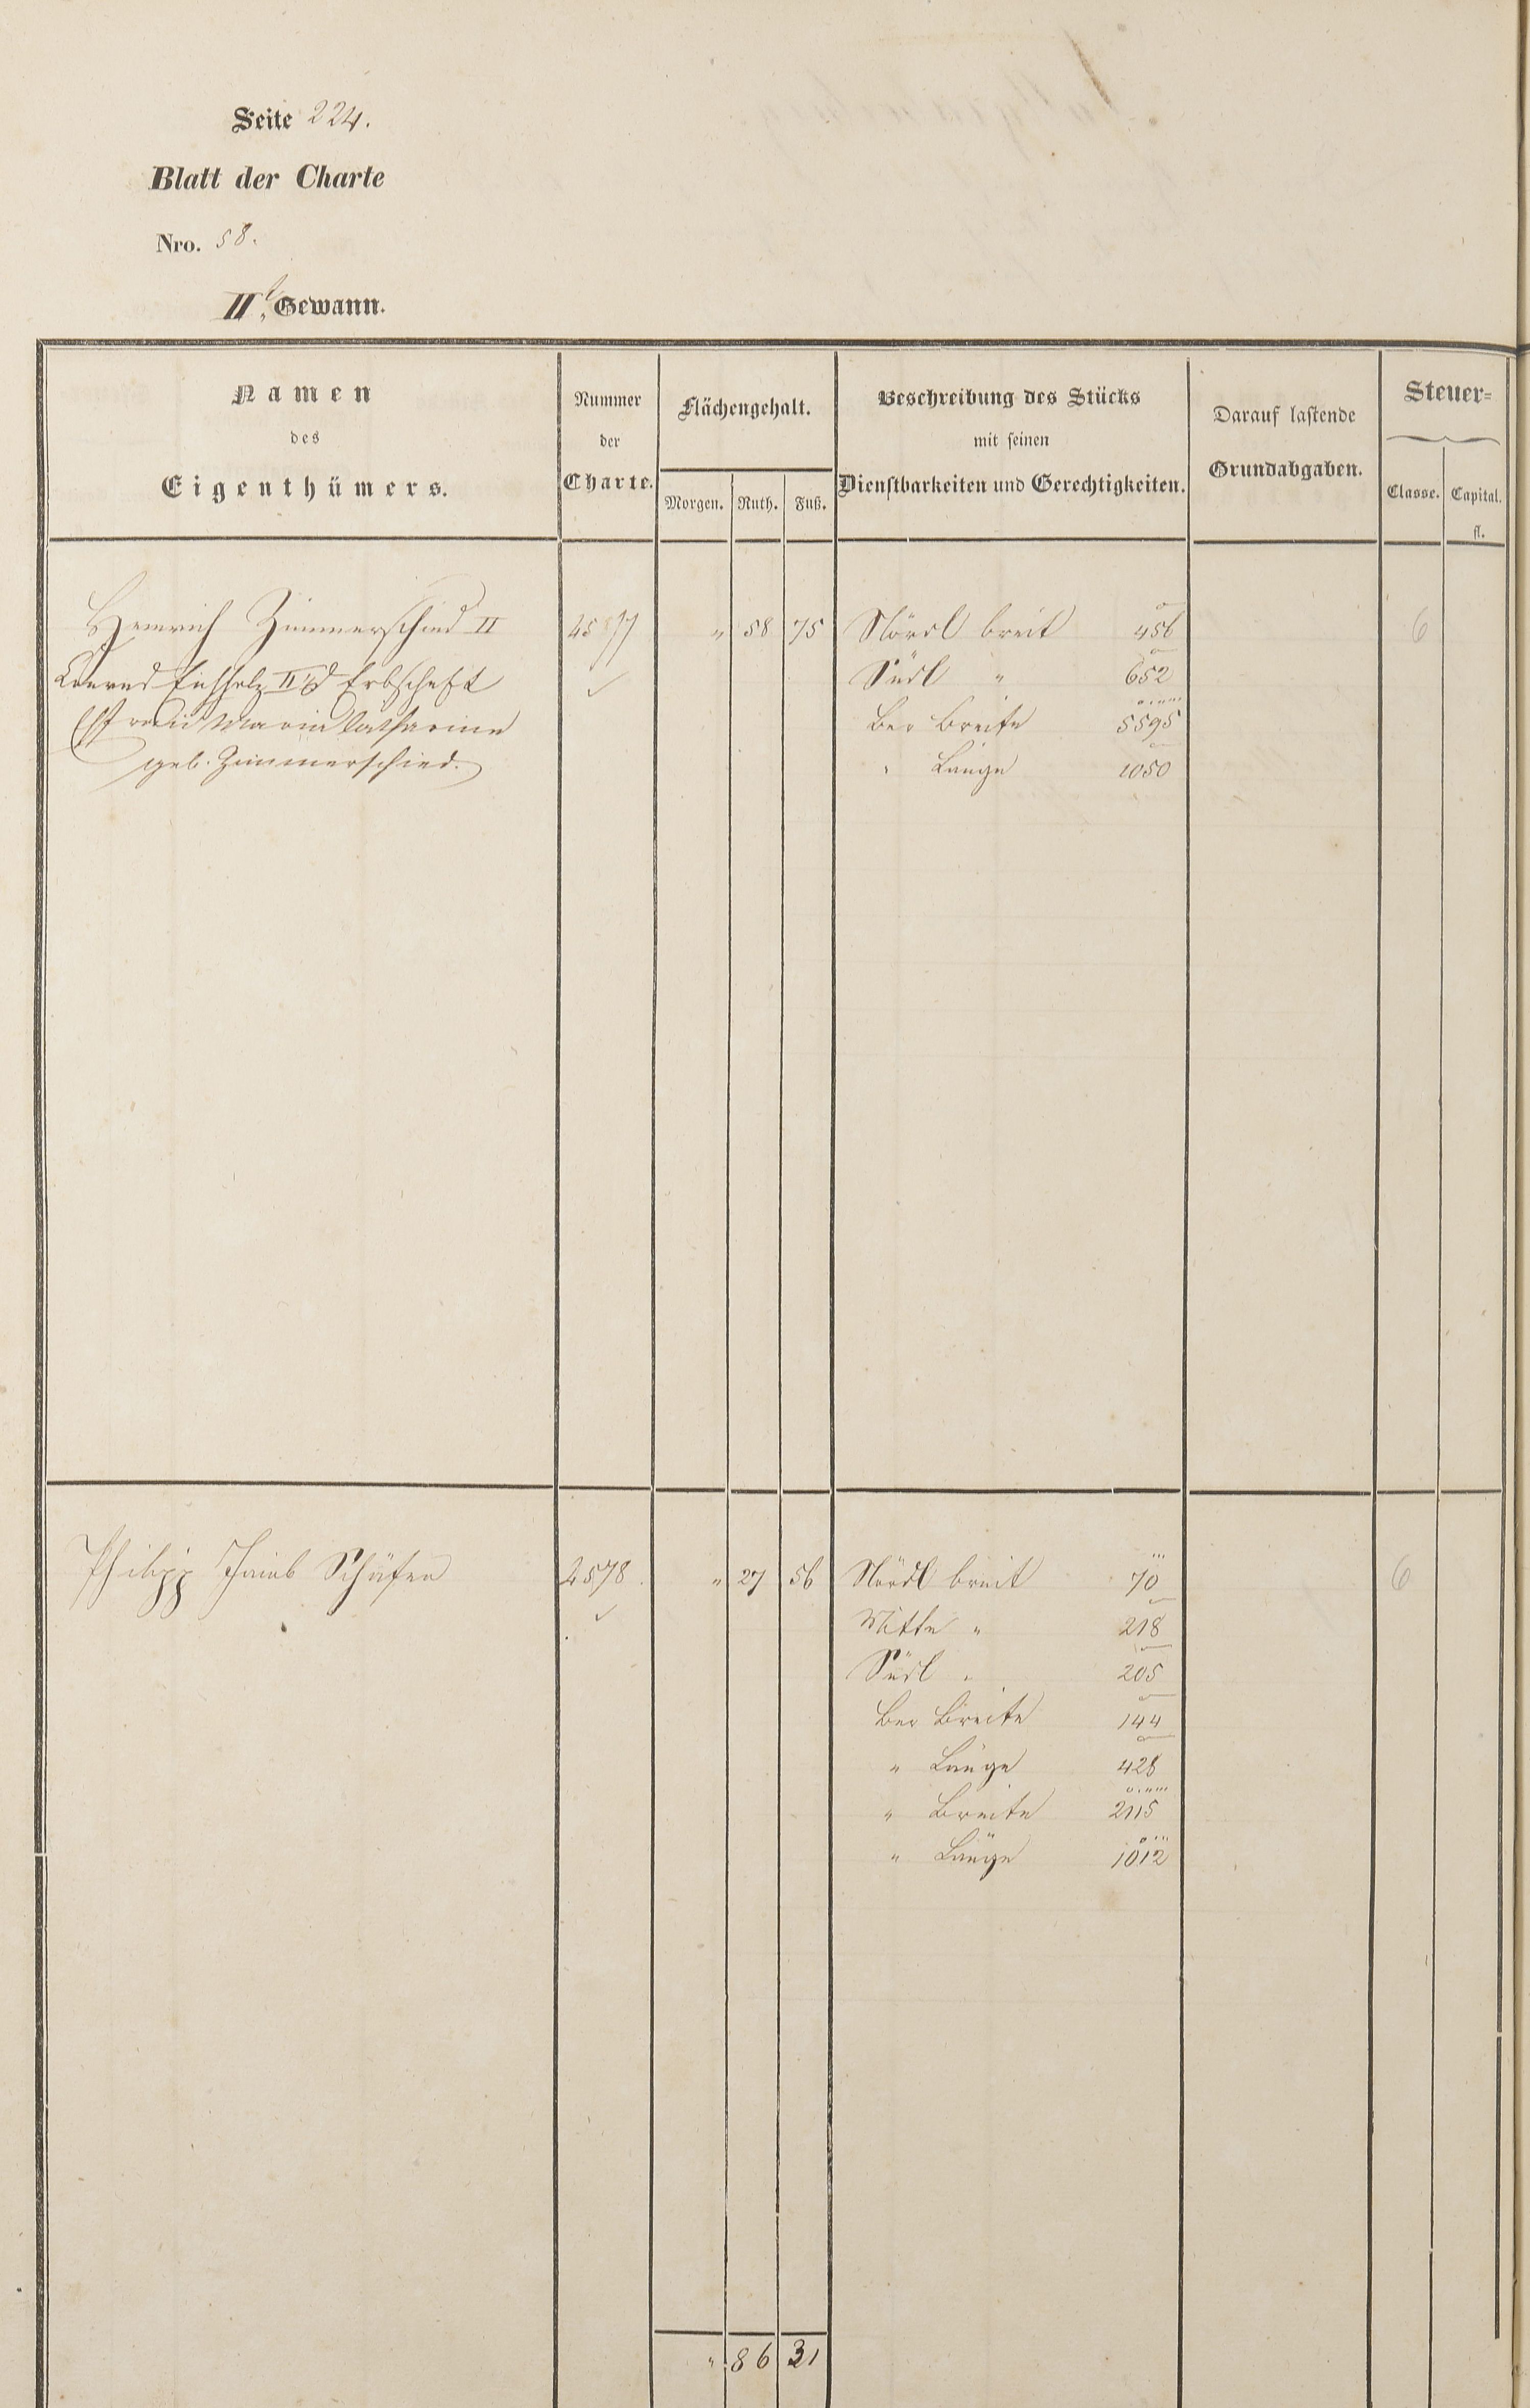 Seite 224.
Blatt der Charte
Nro. 58.
IIt, Gewann.
Namen
des
Eigenthümers.
Nummer
der
Charte.
Flächengehalt.
Morgen. Ruth. Fuß.
Beschreibung des Stücks
mit seinen
Dienstbarkeiten und Gerechtigkeiten.
Darauf lastende
Grundabgaben.
Steuer=
Classe. Capital.
fl.
Heinrich Zimmerschied II 4577 " 58 75 Nördl breit 456 6
Conrad Eichholz II Erbschaft Südl " 652
Ehefrau Maria Catharine Ber Breite 5595
geb. Zimmerschied. " Länge 1050
Philipp Jacob Schäfer 4578 " 27 56 Nördl breit 70 6
Mitte " 218
Südl " 205
Ber Breite 144
" Länge 428
" Breite 2115
" Länge 1012
" 86 31